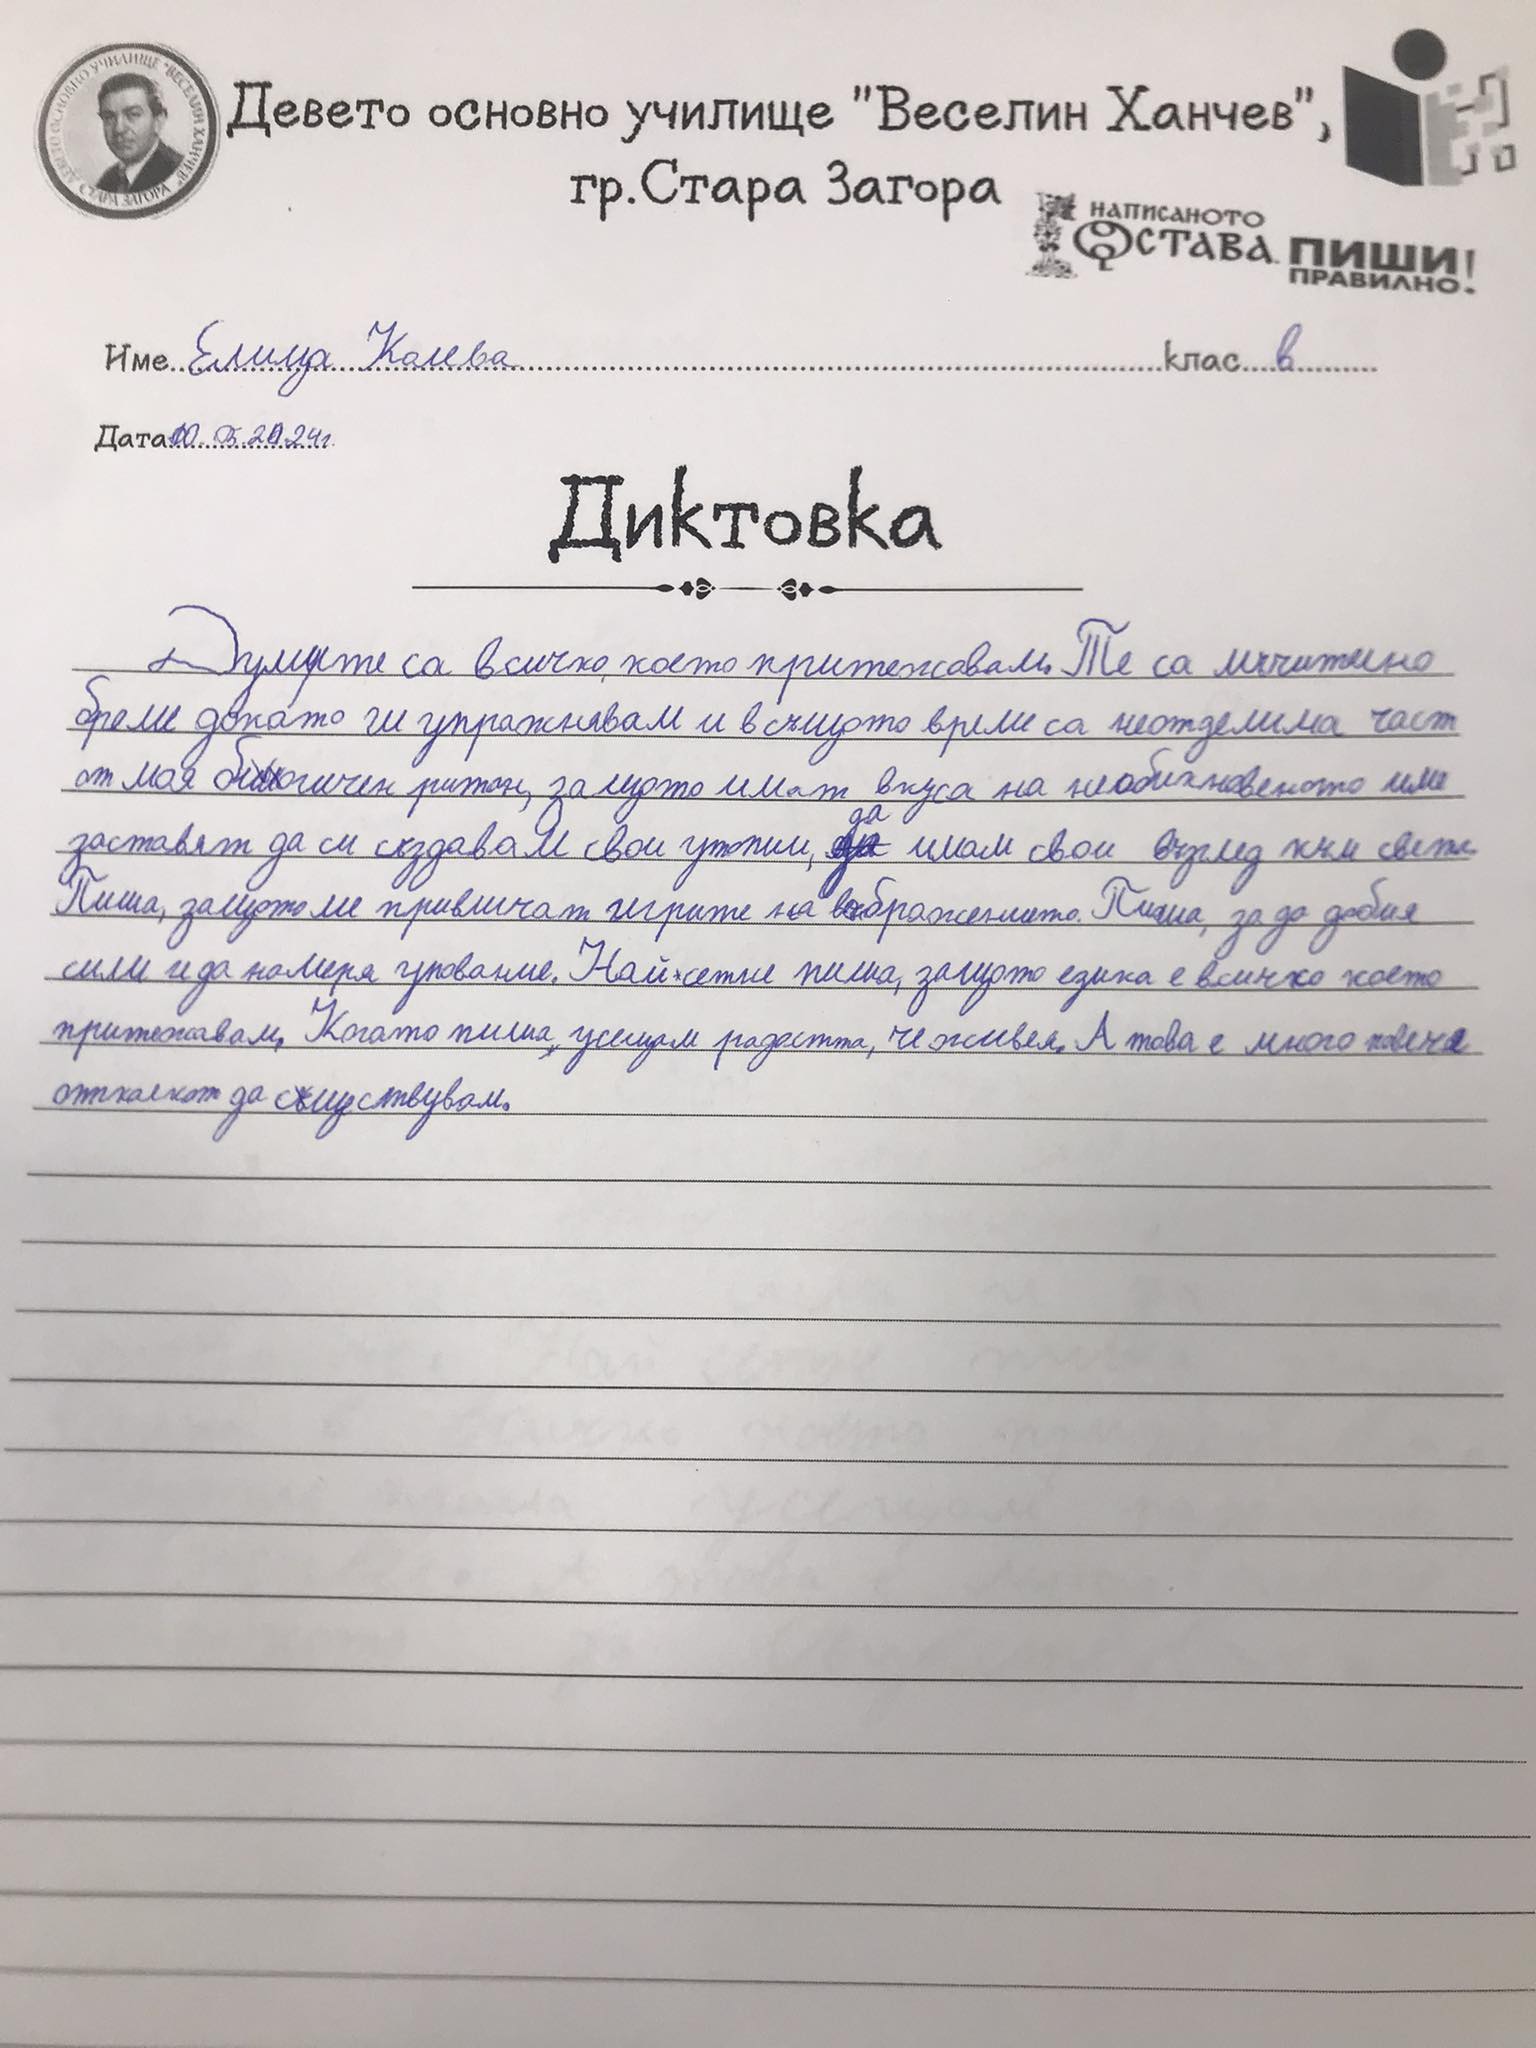 ДЕВЕТО ОСНОВНО УЧИЛИЩЕ "ВЕСЕЛИН ХАНЧЕВ" СТАРА ЗАГОРА
Девето основно училище "Веселин Ханчев",
гр.Стара Загора
НАПИСАНОТО
ОСТАВА. ПИШИ
ПРАВИЛНО!
Име Елица Колева клас в
Дата 10.05.2024г.
Диктовка
Думите са всичко, което притежавам. Те са мъчително
бреме докато ги упражнявам и в същото време са неотделима част
от моя биологичен ритъм, защото имат вкуса на необикновеното и ме
заставят да си създавам свои утопии, да имам свои възглед към света.
Пиша, защото ме привличат игрите на въображението. Пиша, за да добия
сили и да намеря упование. Най-сетне пиша, защото езика е всичко което
притежавам. Когато пиша, усещам радостта, че живея. А това е много повече
отколкот да съществувам.